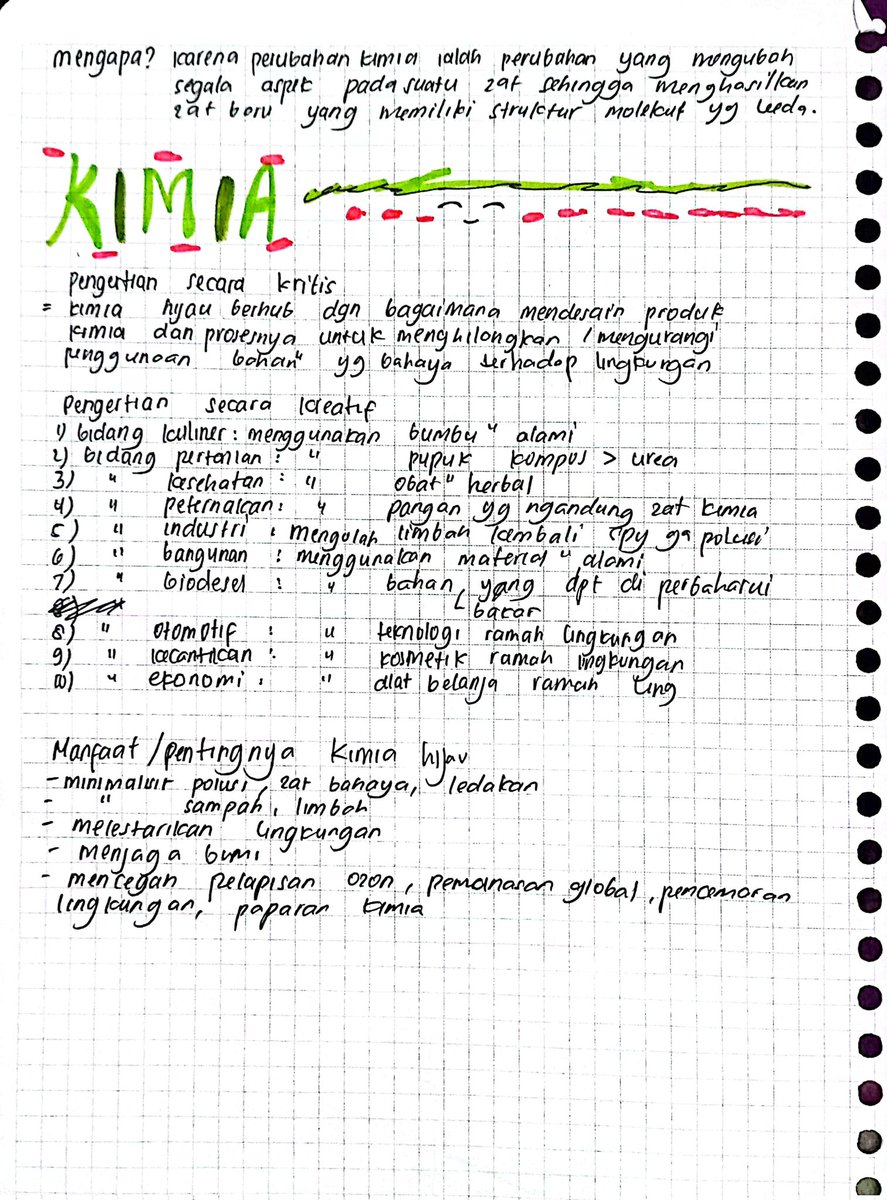 mengapa? karena perubahan kimia ialah perubahan yang mengubah
segala aspek pada suatu zat sehingga menghasilkan
zat baru yang memiliki struktur molekul yg beda.
KIMIA
pengertian secara kritis
= kimia hijau berhub dgn bagaimana mendesain produk
kimia dan prosesnya untuk menghilangkan / mengurangi
penggunaan bahan" yg bahaya terhadap lingkungan
Pengertian secara kreatif
1) bidang kuliner : menggunakan bumbu" alami
2) bidang pertanian : " pupuk kompos > urea
3) " kesehatan : " obat" herbal
4) " peternakan : " pangan yg ngandung zat kimia
5) " industri : mengolah limbah kembali spy ga polusi
6) " bangunan : menggunakan material" alami
7) " biodesel : " bahan yang dpt di perbaharui
bakar
8) " otomotif : " teknologi ramah lingkungan
9) " kecantikan : " kosmetik ramah lingkungan
10) " ekonomi : " alat belanja ramah ling
Manfaat / pentingnya kimia hijau
- minimalisir polusi, zat bahaya, ledakan
- " sampah, limbah
- melestarikan lingkungan
- menjaga bumi
- mencegah pelapisan ozon, pemanasan global, pencemaran
lingkungan, paparan kimia